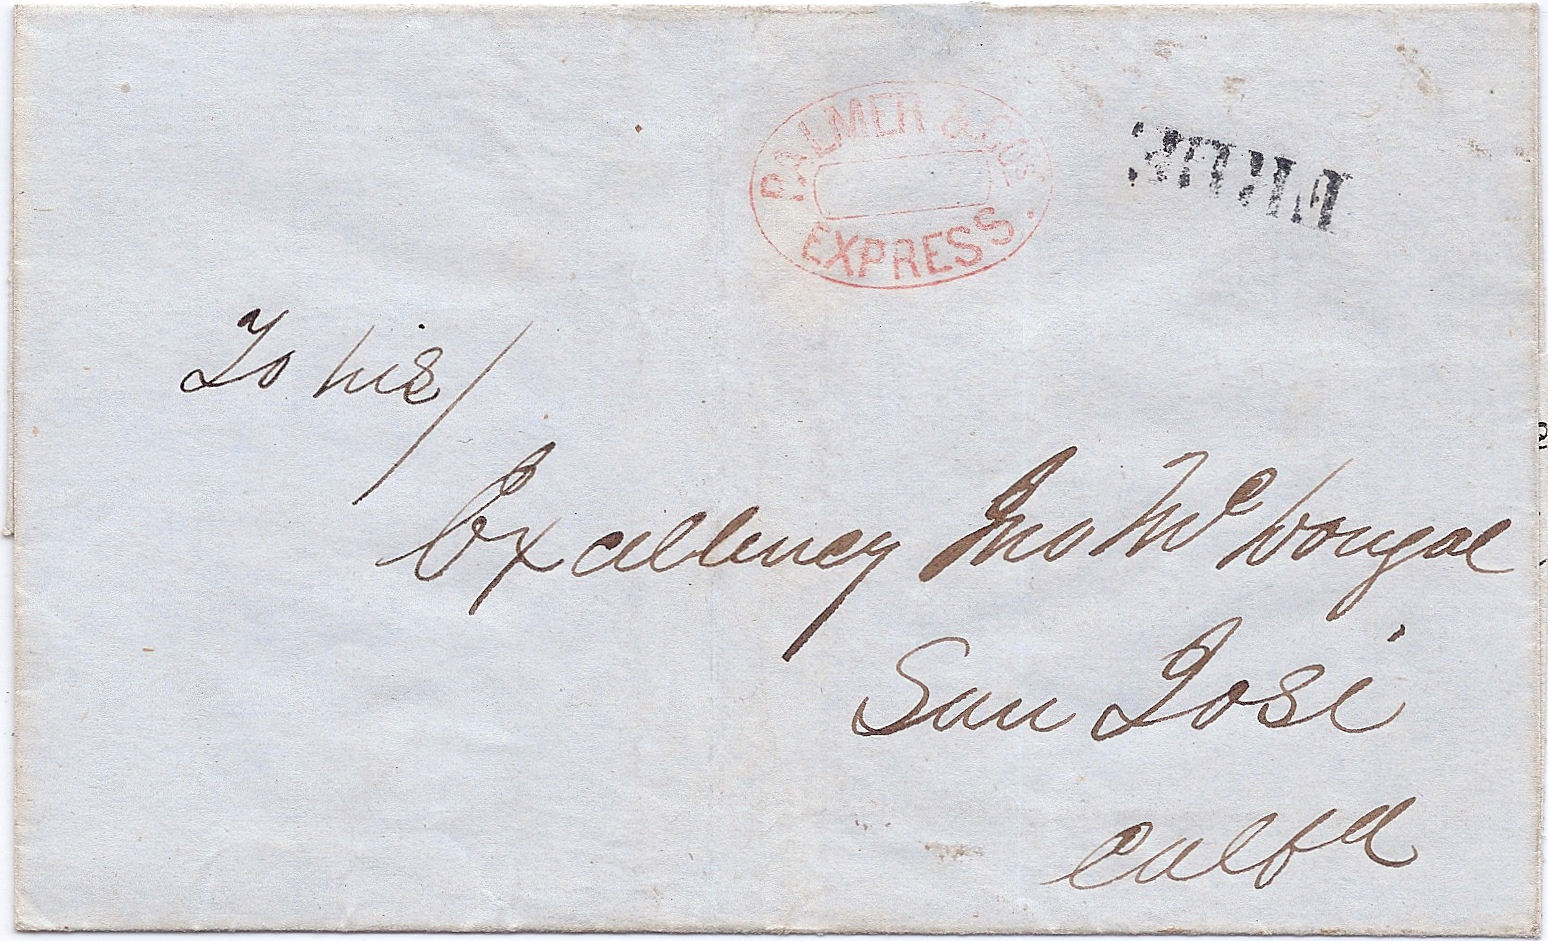 PALMER & Cos
EXPRESS.
To his/
Excellency Jno McDougal
San José
Calfa